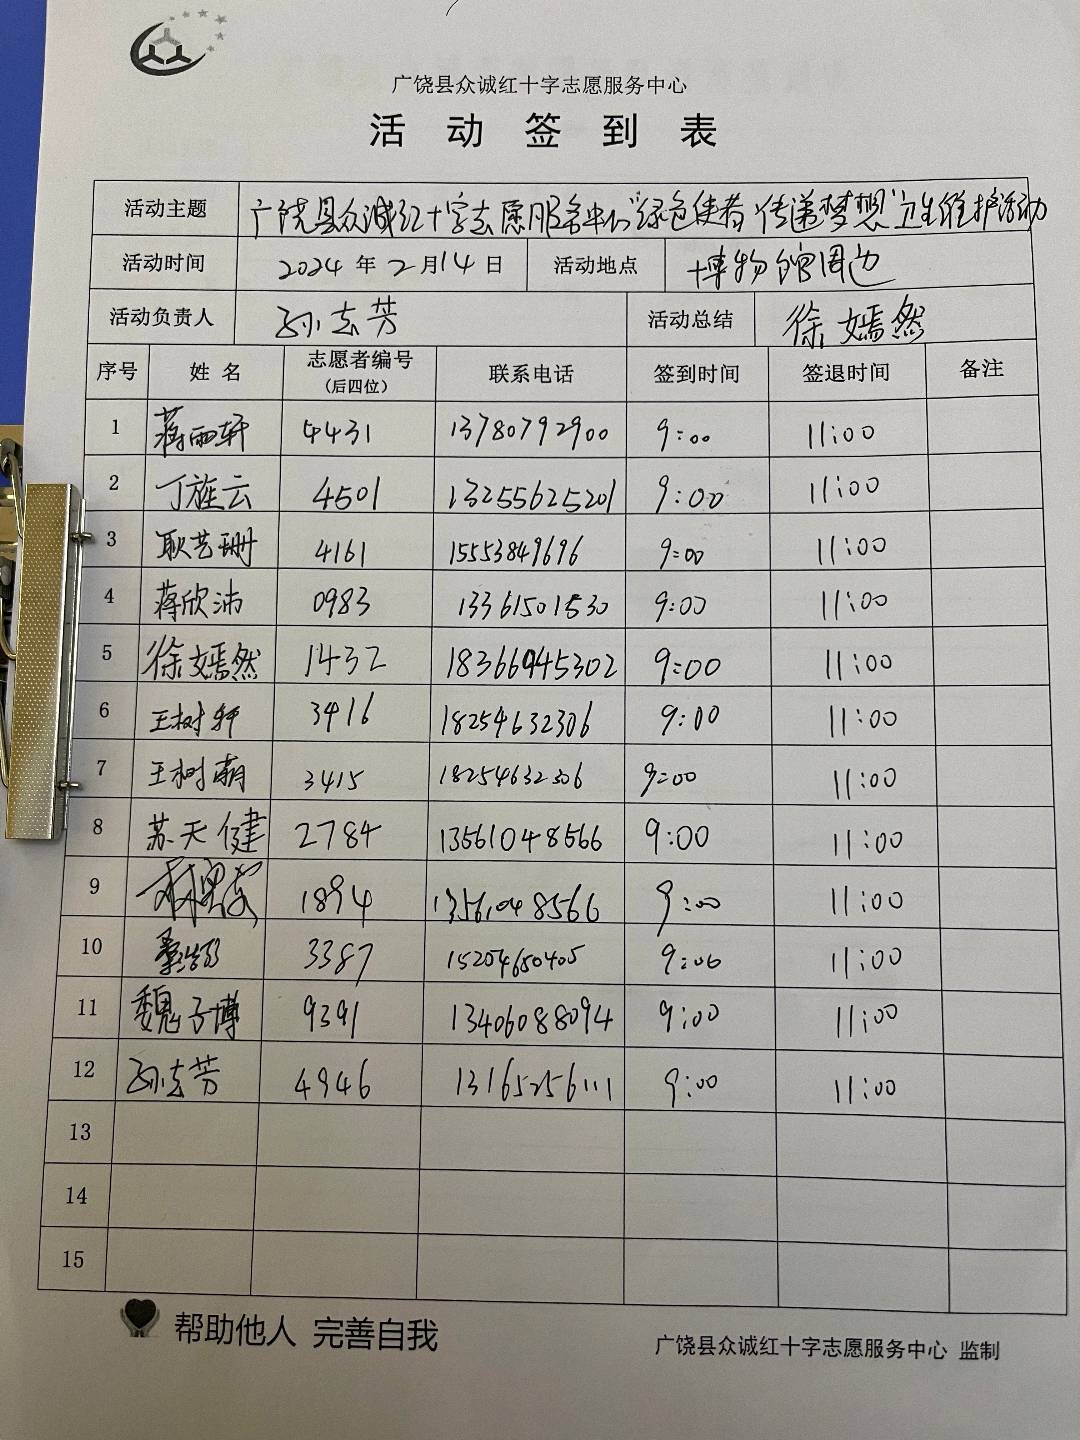 广饶县众诚红十字志愿服务中心
活动签到表
活动主题 广饶县众诚红十字志愿服务中心"绿色使者 传递梦想"卫生维护活动
活动时间 2024年2月14日 活动地点 博物馆周边
活动负责人 孙志芳 活动总结 徐嫣然
序号 姓名 志愿者编号（后四位） 联系电话 签到时间 签退时间 备注
1 蒋雨轩 4431 13780792900 9:00 11:00
2 丁旌云 4501 13255625201 9:00 11:00
3 耿艺珊 4161 15553849696 9:00 11:00
4 蒋欣沛 0983 13361501530 9:00 11:00
5 徐嫣然 1432 18366945302 9:00 11:00
6 王树轩 3416 18254632306 9:00 11:00
7 王树萌 3415 18254632306 9:00 11:00
8 苏天健 2784 13561048566 9:00 11:00
9 1894 13561048566 9:00 11:00
10 3387 15204650405 9:00 11:00
11 魏子博 9391 13406088094 9:00 11:00
12 孙志芳 4946 13165256111 9:00 11:00
13
14
15
帮助他人 完善自我
广饶县众诚红十字志愿服务中心 监制